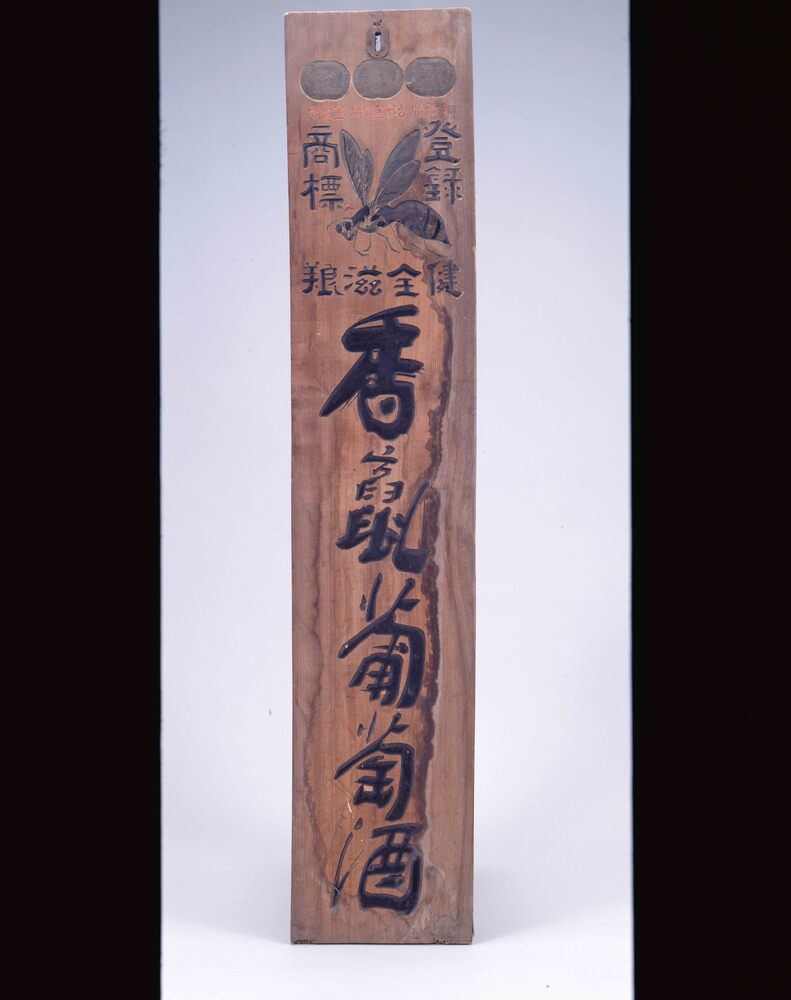 登録
商標
健全滋養
香竄葡萄酒